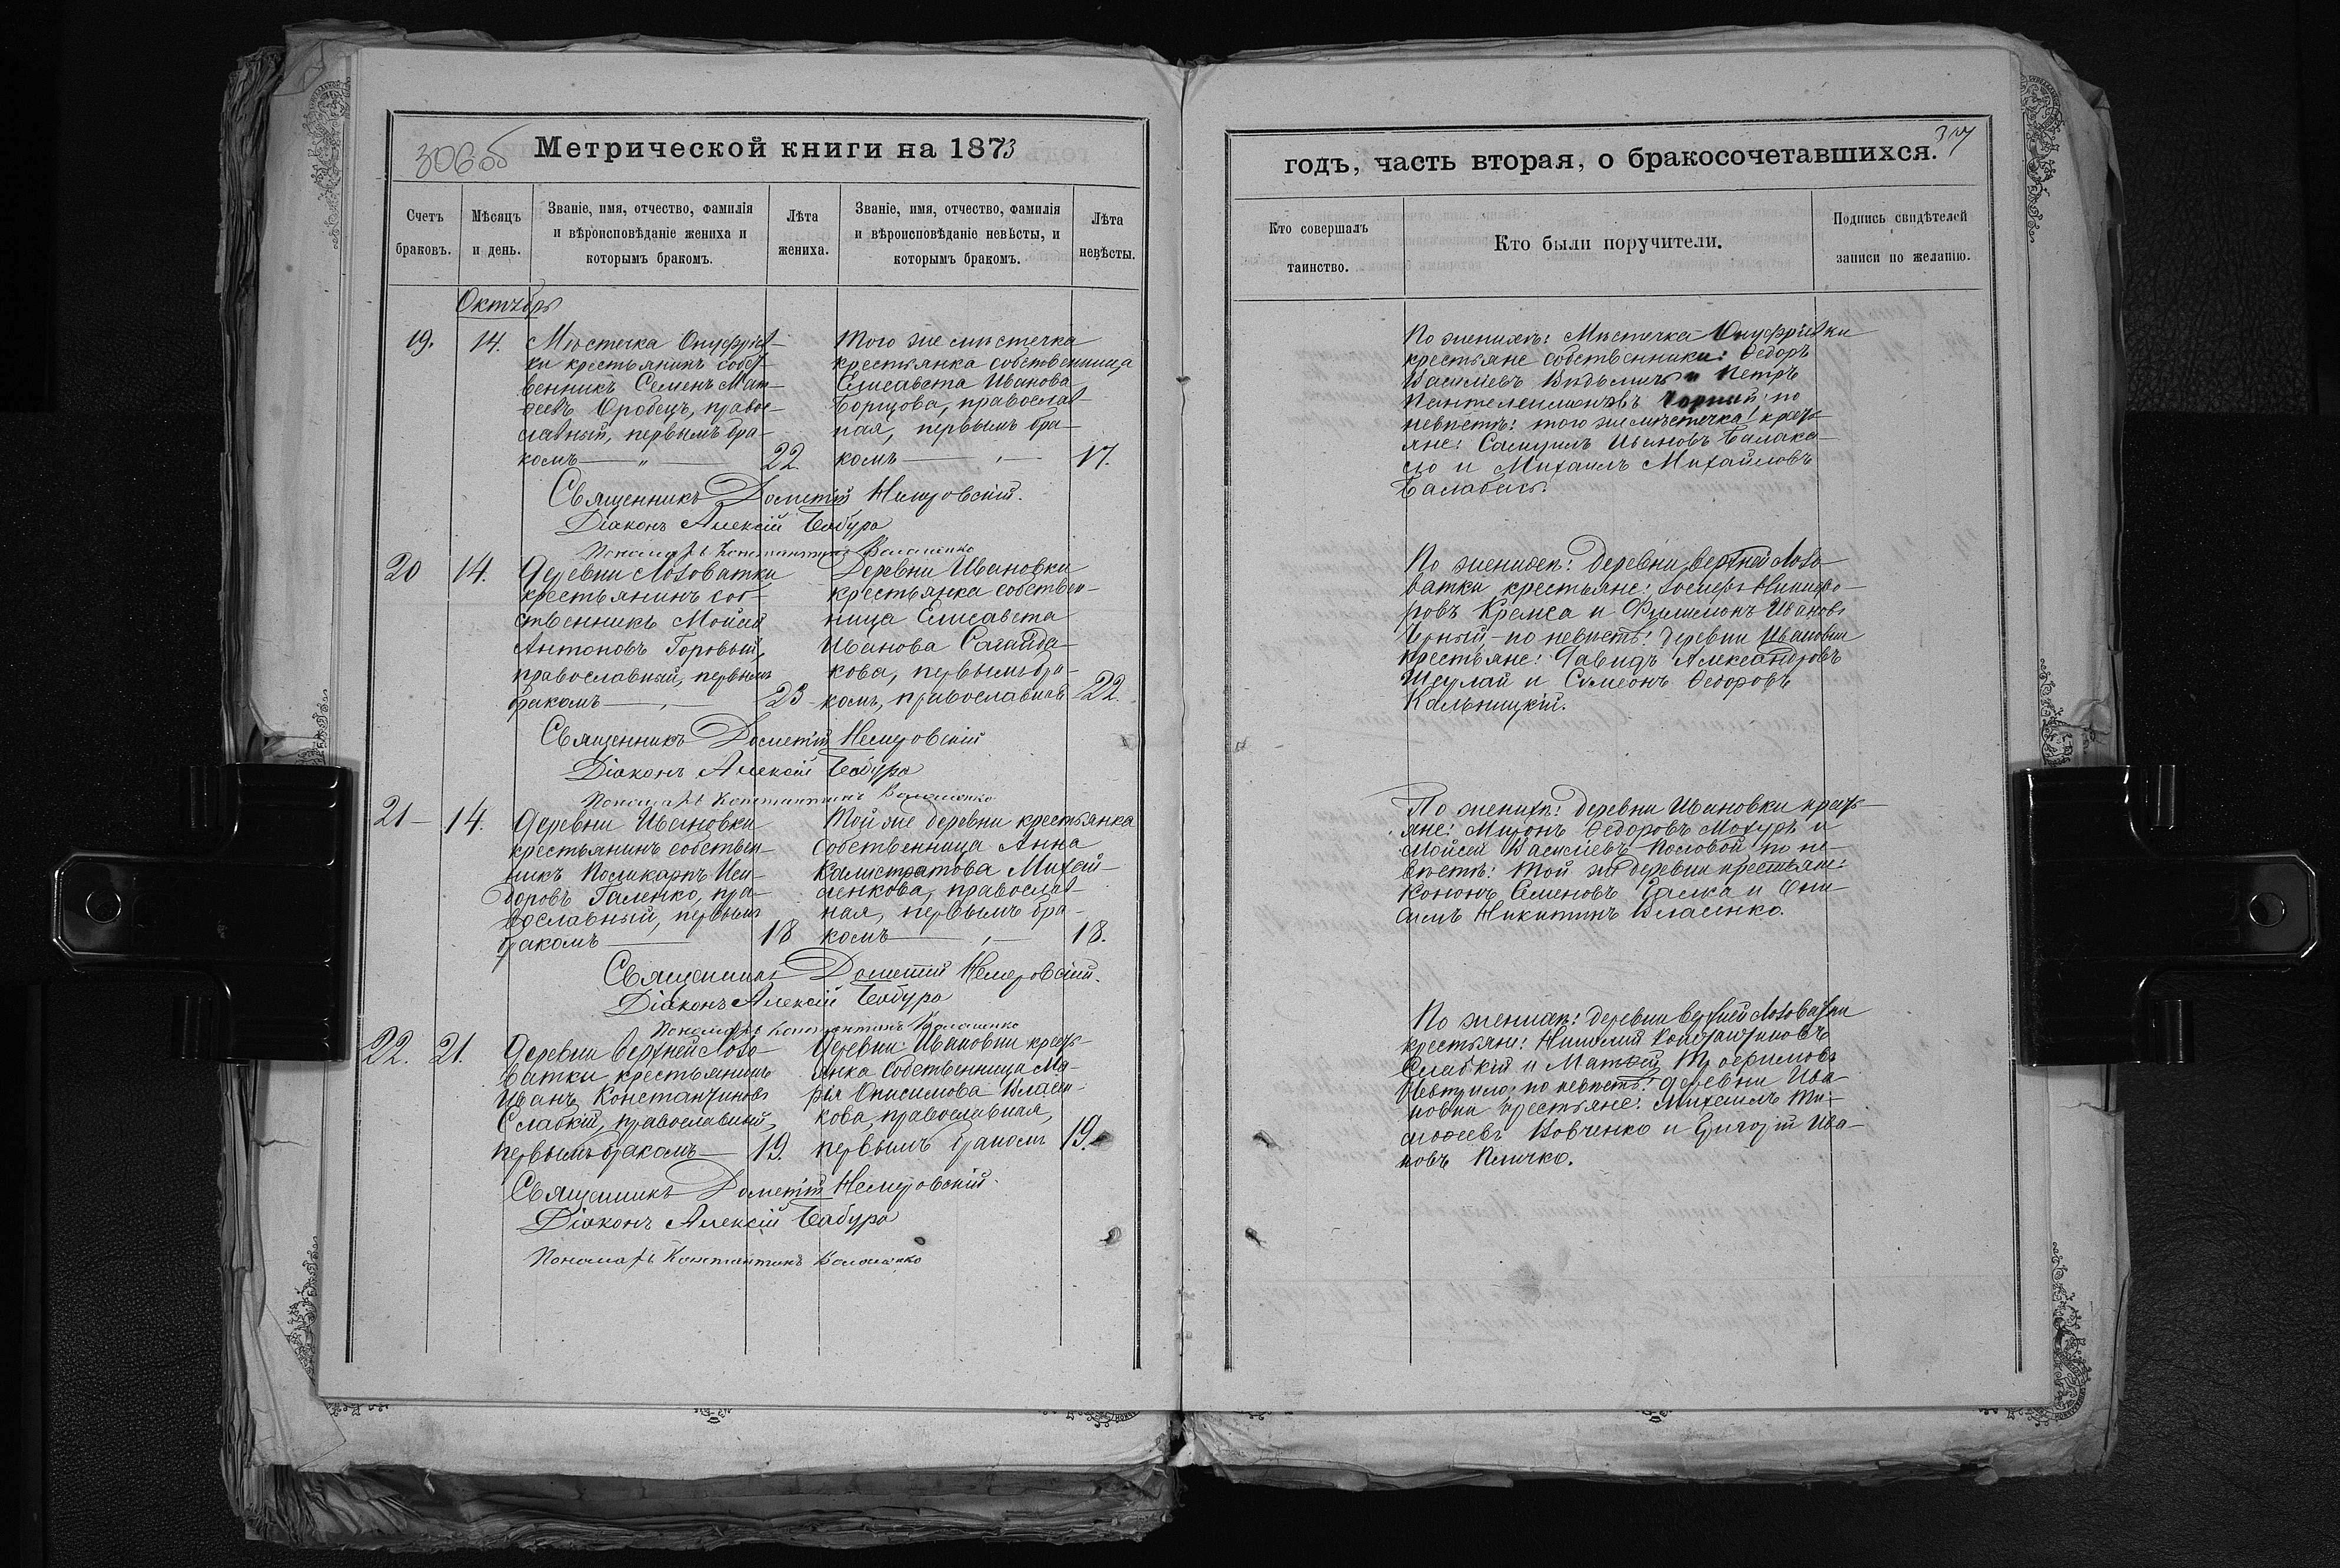 306об
Метрической книги на 1873
Счетъ
браковъ.
Мѣсяцъ
и день.
Званіе, имя, отчество, фамилія
и вѣроисповѣданіе жениха и
которымъ бракомъ.
Лѣта
жениха.
Званіе, имя, отчество, фамилія
и вѣроисповѣданіе невѣсты, и
которымъ бракомъ.
Лѣта
невѣсты.
Октябрь
19.
14.
Мѣстечка Онуфріев-
ки крестьянинъ собст-
венникъ Семенъ Мат-
ѳеевъ Оробецъ, право-
славный, первымъ бра-
комъ
22.
Того же мѣстечка
крестьянка собственница
Елисавета Иванова
Борщова, православ-
ная, первымъ бра-
комъ
17.
Священникъ Дометій Немировскій.
Діаконъ Алексій Бабура
Пономарь Константинъ
20
14.
Деревни Лозоватки
крестьянинъ соб-
ственникъ Мойсей
Антоновъ Горовый,
православный, первымъ
бракомъ
23
Деревни Ивановки
крестьянка собствен-
ница Елисавета
Иванова Сагайда-
кова, первымъ бра-
комъ, православная
22.
Священникъ Дометій Немировскій
Діаконъ Алексій Бабура
Пономарь Константинъ
21
14.
Деревни Ивановки
крестьянинъ собствен-
никъ Поликарпъ Иси-
доровъ Галенко, пра-
вославный, первымъ
бракомъ
18
Той же деревни крестьянка
собственница Анна
Калистратова Михай-
ленкова, православ-
ная, первымъ бра-
комъ
18.
Священникъ Дометій Немировскій.
Діаконъ Алексій Бабура
Пономарь Константинъ
22.
21.
Деревни Верхней Лозо-
ватки крестьянинъ
Иванъ Константиновъ
Слабкій, православный,
первымъ бракомъ
19.
Деревни Ивановки кресть-
янка собственница Ма-
рія Онисимова Власен-
кова, православная,
первымъ бракомъ
19.
Священникъ Дометій Немировскій.
Діаконъ Алексій Бабура
Пономарь Константинъ
годъ, часть вторая, о бракосочетавшихся.
Кто совершалъ
таинство.
Кто были поручители.
Подпись свидѣтелей
записи по желанію.
По женихѣ: Мѣстечка Онуфріевки
крестьяне собственники: Ѳедоръ
Васильевъ и Петръ
Пантелеимоновъ Чорный; по
невѣстѣ: того же мѣстечка кресть-
яне: Самуилъ Ивановъ
и Михаилъ Михайловъ
Балабасъ.
По женихѣ: Деревни Верхней Лозо-
ватки крестьяне:
Кремса и Филимонъ Ивановъ
Чорный по невѣстѣ: деревни Ивановки
крестьяне: Давидъ Александровъ
Шерлай и Симеонъ Ѳедоровъ
Кальницкій.
По женихѣ: деревни Ивановки кресть-
яне: Миронъ Ѳедоровъ Мохуръ и
Мойсей Васильевъ по не-
вѣстѣ: той же деревни крестьяне:
Кононъ Семеновъ и Они-
симъ Никитинъ Власенко.
По женихѣ: деревни Верхней Лозоватки
крестьяне: Константиновъ
Слабкій и Матѳей Трофимовъ
по невѣстѣ: деревни Ива-
новки крестьяне: Михаилъ Ти-
моѳеевъ Вовченко и Григорій Ива-
новъ Кличко.